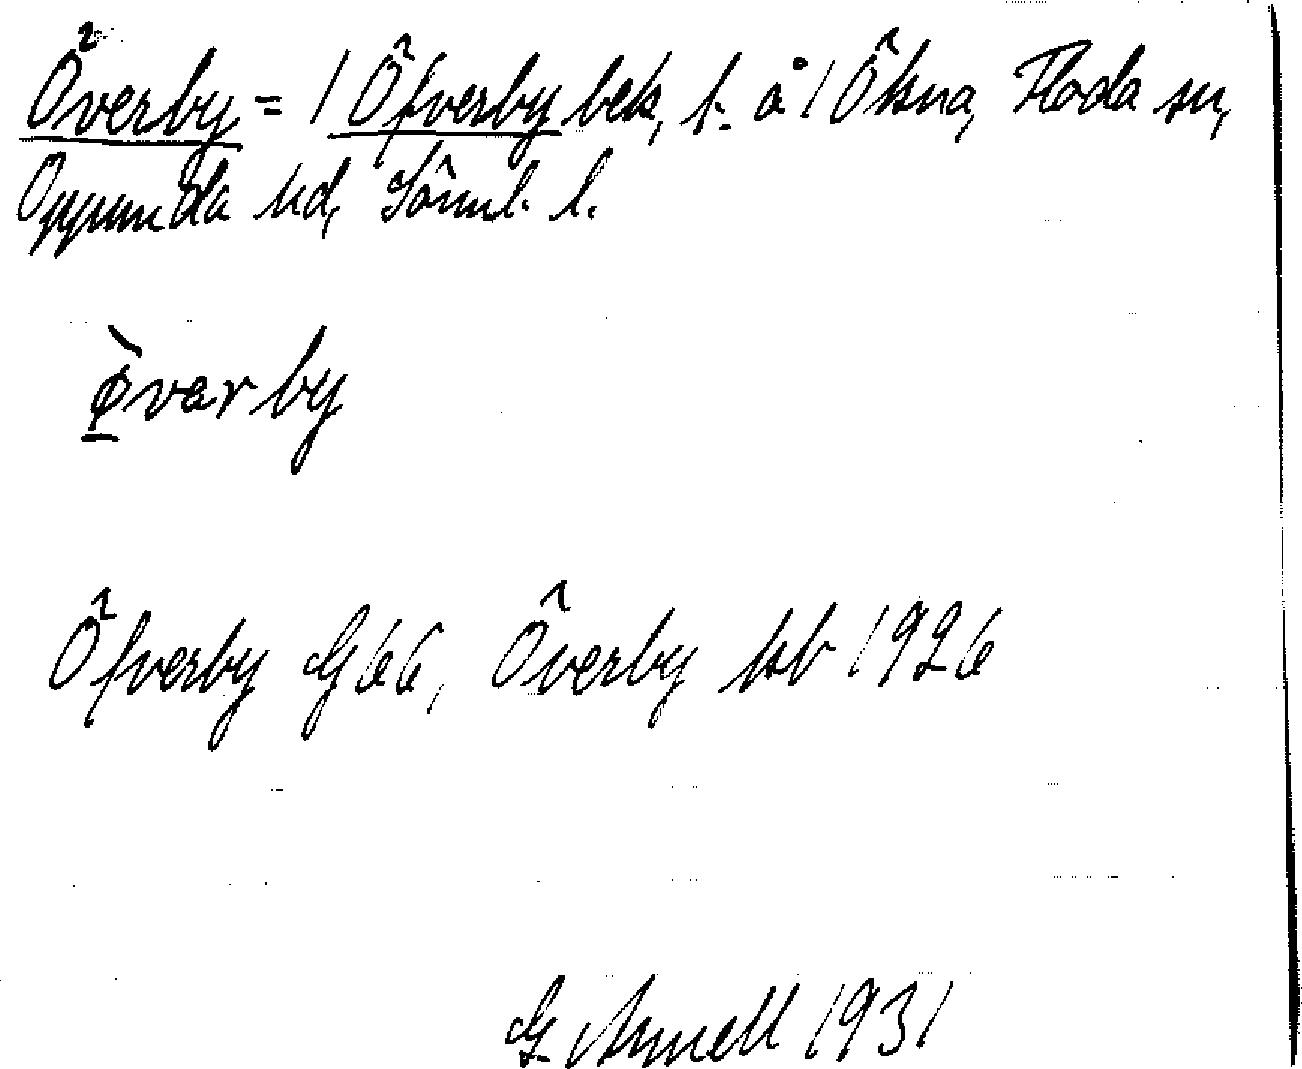 Överby = / Öfverby bek, t. å / Ökna, Floda sn,
Oppunda hd, Söml. l.
ø̀varby
Öfverby G 66, Överby kb 1926
G. Arnell 1931